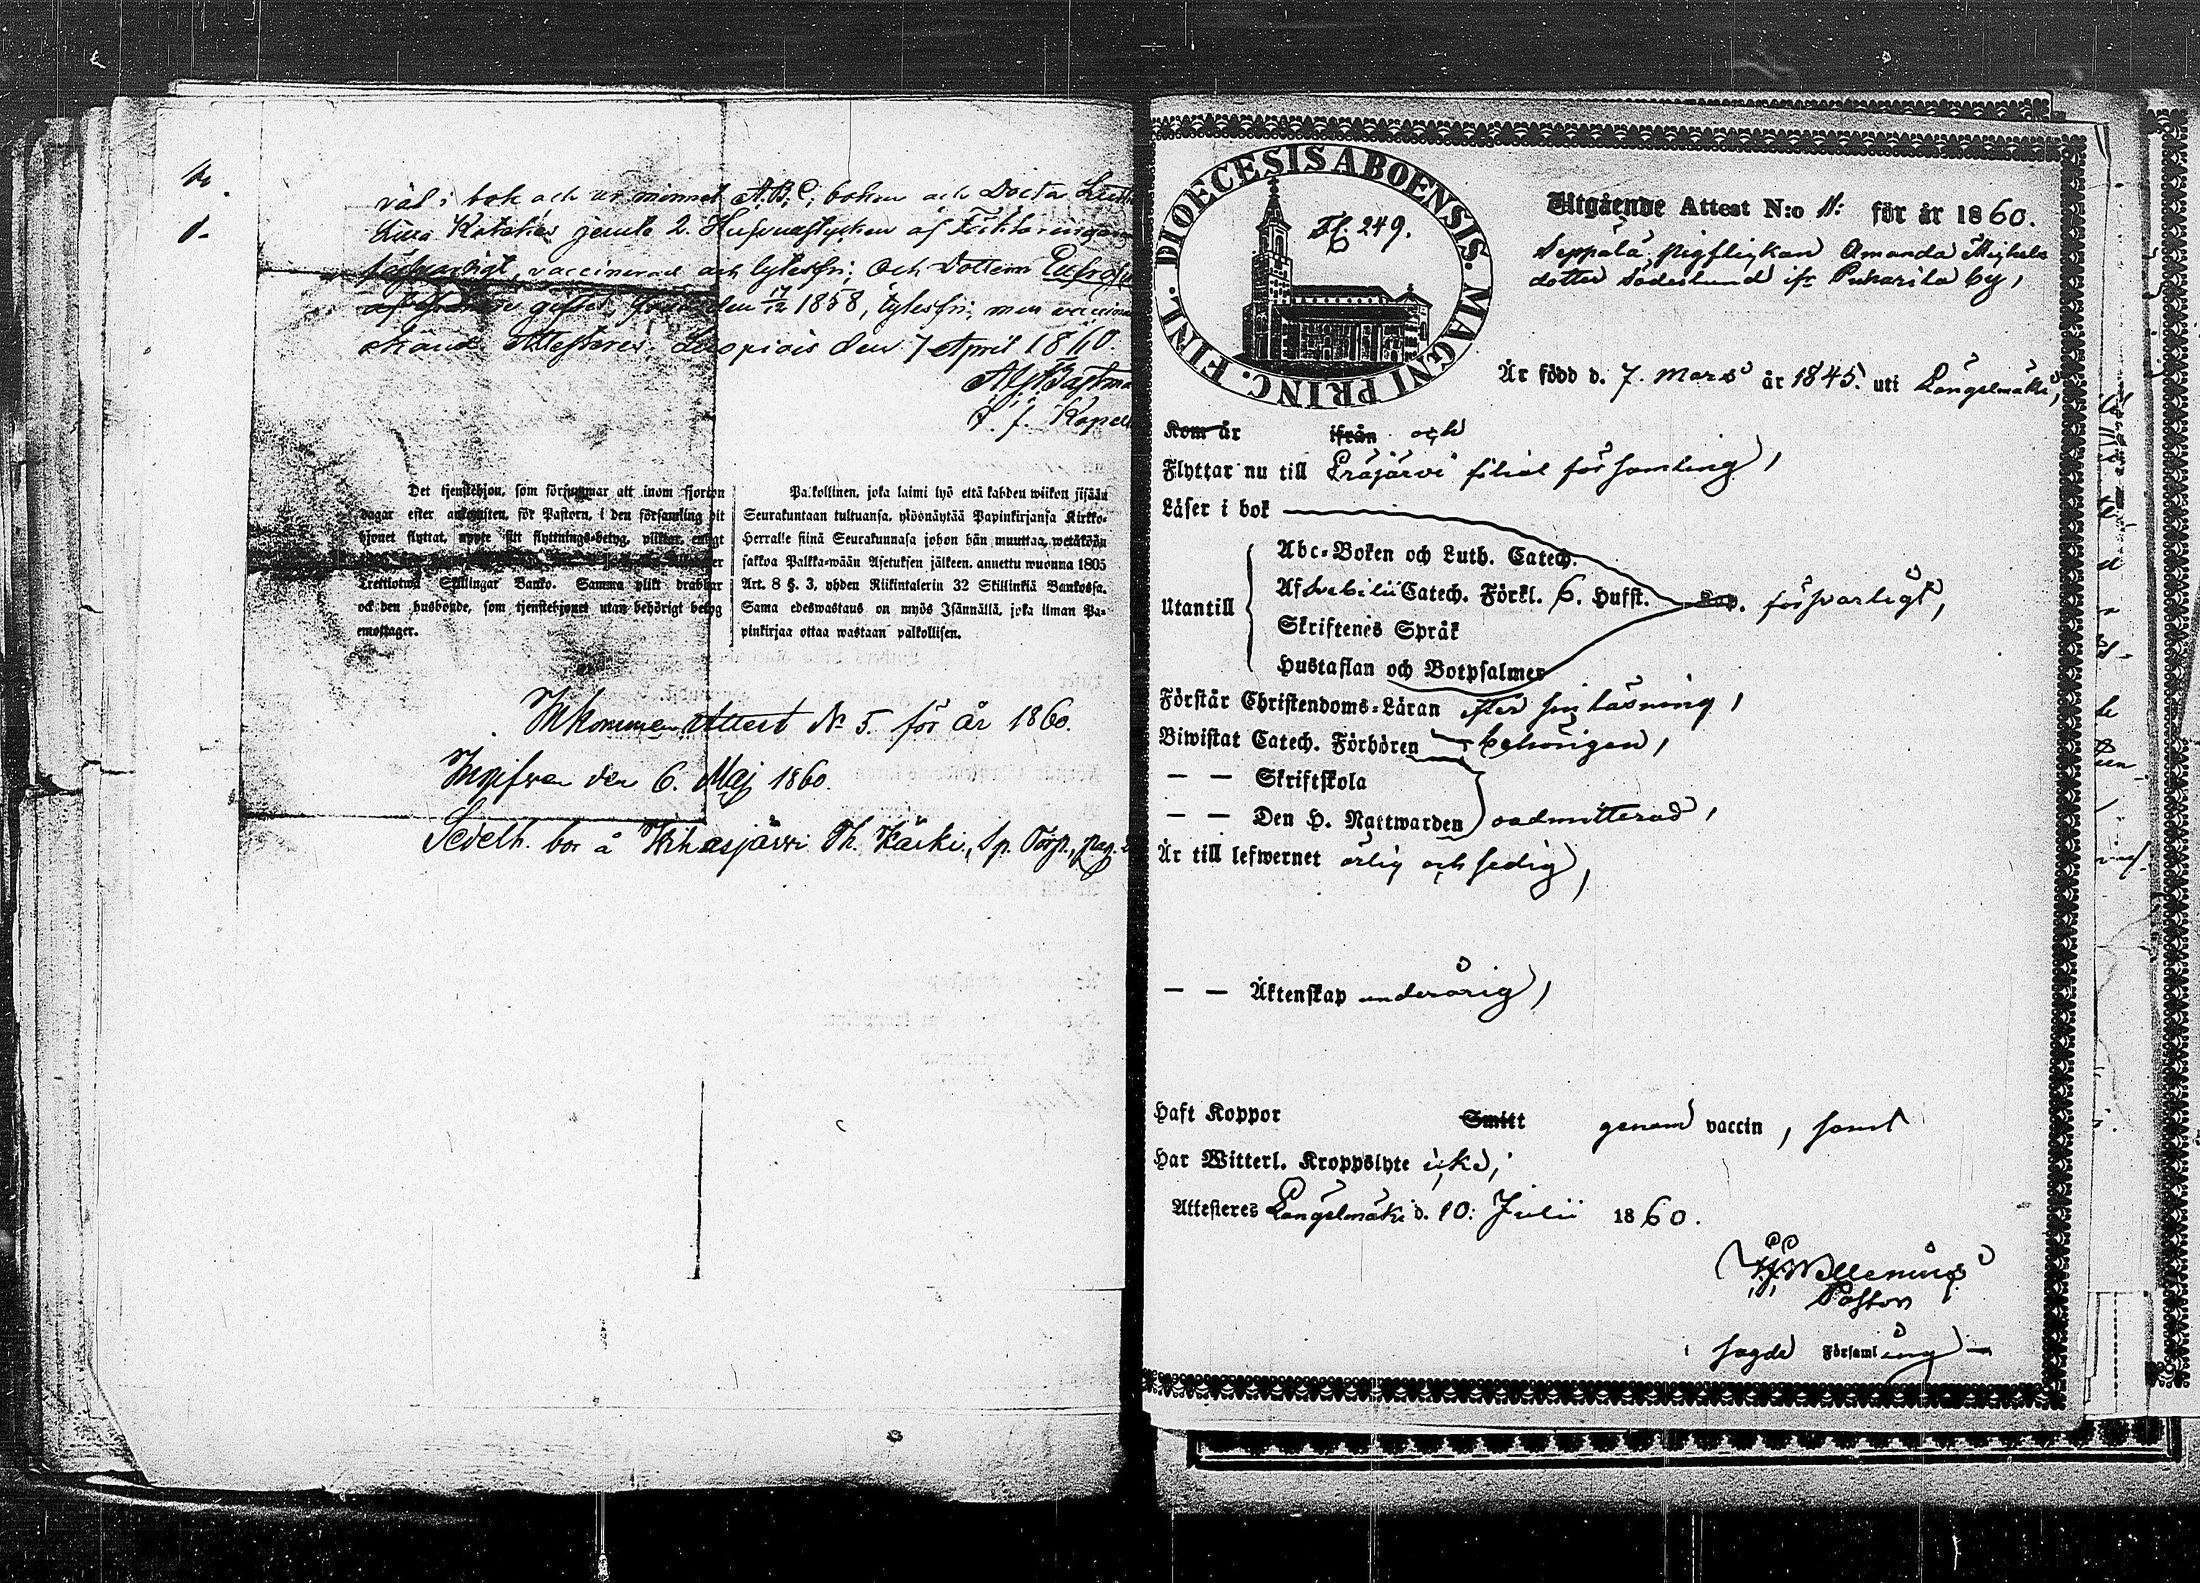 väl i bok och ur minnet A.B.C, boken och Docta Luth
Lilla Kateches jemte 2. Hufvudstycken af Förklaringen
försvarligt, vaccinerad och lytesfri; Och Dottern Eufros
den 17/12 1858, lytesfri, men vaccine
okänd Attesteras. Luopiois den 7 April 1860.
Kapell
Det tjenstehjon, som försummar att inom fjorton
dagar efter ankomsten, för Pastorn, i den församling dit
hjonet flyttat, uppte sitt flyttnings-betyg, pliktar, enligt
Trettiotwå Skillingar Banko. Samma plikt drabbar
ock den husbonde, som tjenstehjonet utan behörigt betyg
emottager.
Palkollinen, joka laimi lyö että kahden wiikon sisään
Seurakuntaan tultuansa, ylösnäytää Papinkirjansa Kirkko-
Herralle siinä Seurakunnasa johon hän muuttaa, wetäköön
sakkoa Palkka-wään Asetuksen jälkeen, annettu wuonna 1805
Art. 8 §. 3, yhden Riikintalerin 32 Skillinkiä Bankossa.
Sama edeswastaus on myös Isännällä, joka ilman Pa-
pinkirjaa ottaa wastaan palkollisen.
Inkommen Attest No 5. för år 1860.
Ingifven den 6. Maj 1860.
Sedelh. bor å Vihasjärvi Th. Kärki, Sp. Torp., pag.
DIOECESIS ABOENSIS. MAGNI PRINC. FINL.
Fl. 249.
Utgående Attest N:o 11: för år 1860.
Seppälä, pigflickan Amanda Michels
dotter Söderlund ifr. Pukarila by,
Är född d. 7. Mars år 1845. uti Längelmäki,
Kom år ifrån och
Flyttar nu till Eräjärvi filial församling,
Läser i bok
Utantill
Abc-Boken och Luth. Catech.
Af Svebilii Catech. Förkl. 6. Hufst. försvarligt,
Skriftenes Språk
Hustaflan och Botpsalmer
Förstår Christendoms-Läran efter sin läsning,
Biwistat Catech. Förhören behörigen,
— — Skriftskola
— — Den H. Nattwarden oadmitterad,
Är till lefwernet ärlig och sedig,
— — Äktenskap underårig,
Haft Koppor Smitt genom vaccin, samt
Har Witterl. Kroppslyte icke,
Attesteres Längelmäki d. 10: Julii 1860.
Pastor
i sagde Församling